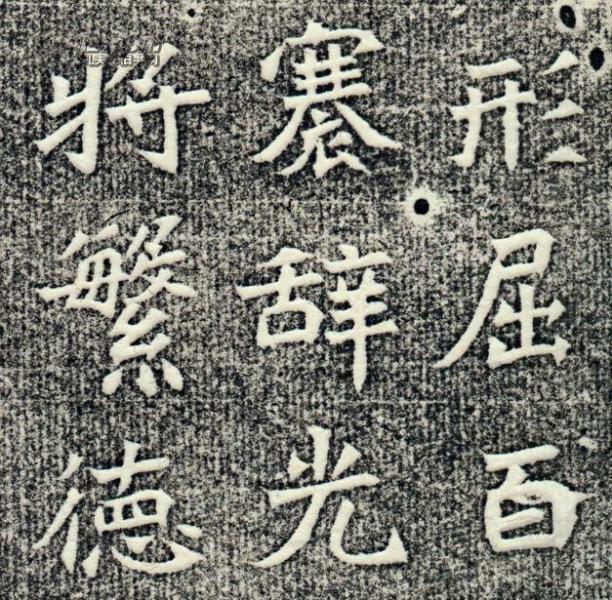 形屈百
褰辞光
将繁德